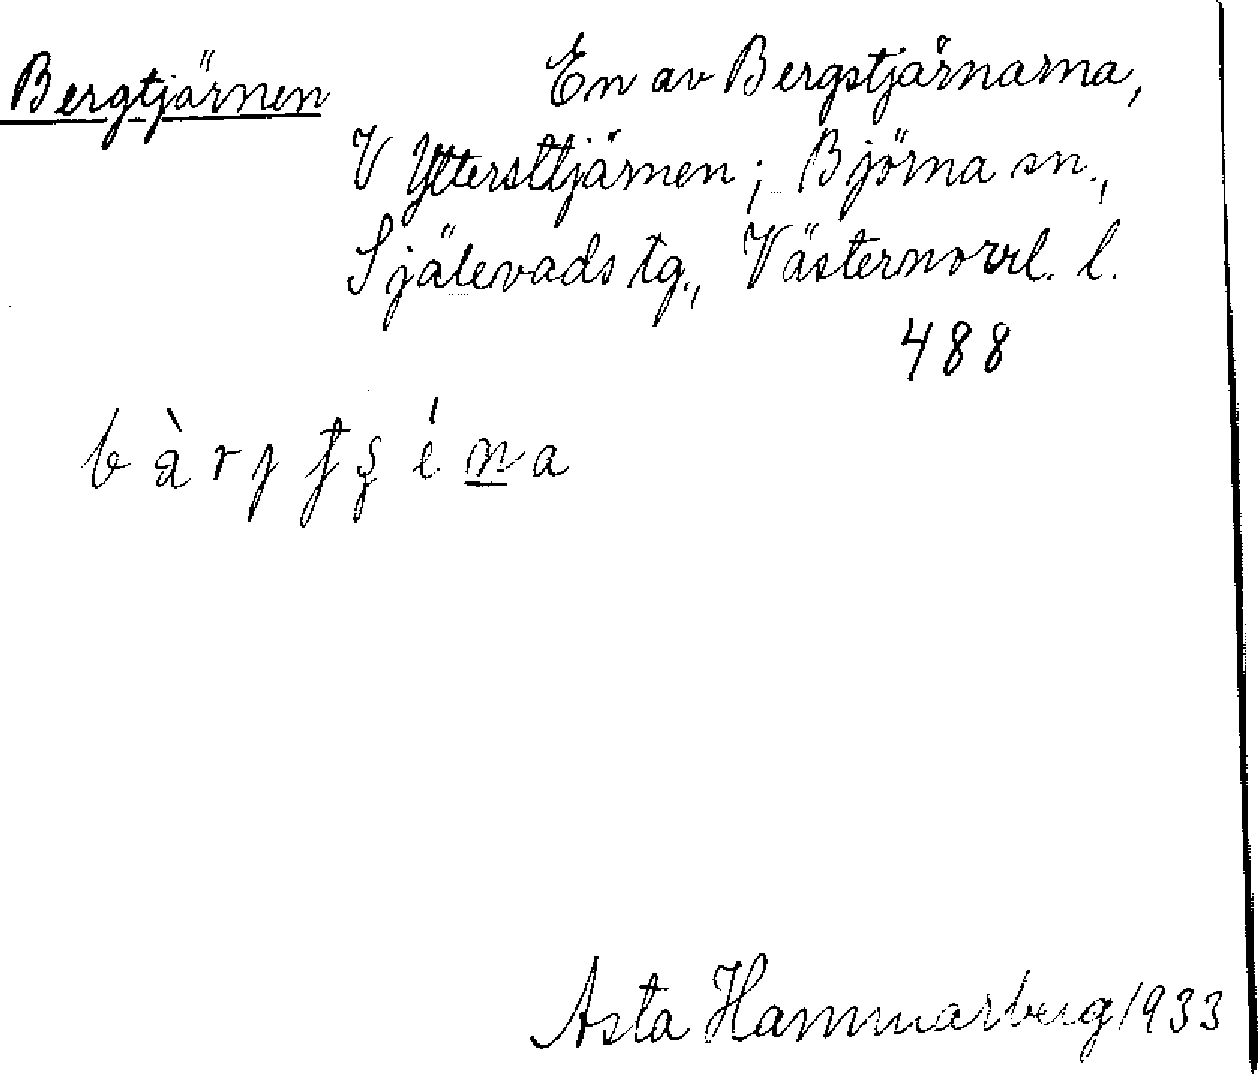 Bergtjärnen
En av Bergstjärnarna,
V Yttersttjärnen; Björna sn.,
Själevads tg., Västernorrl. l.
488
Asta Hammarberg 1933